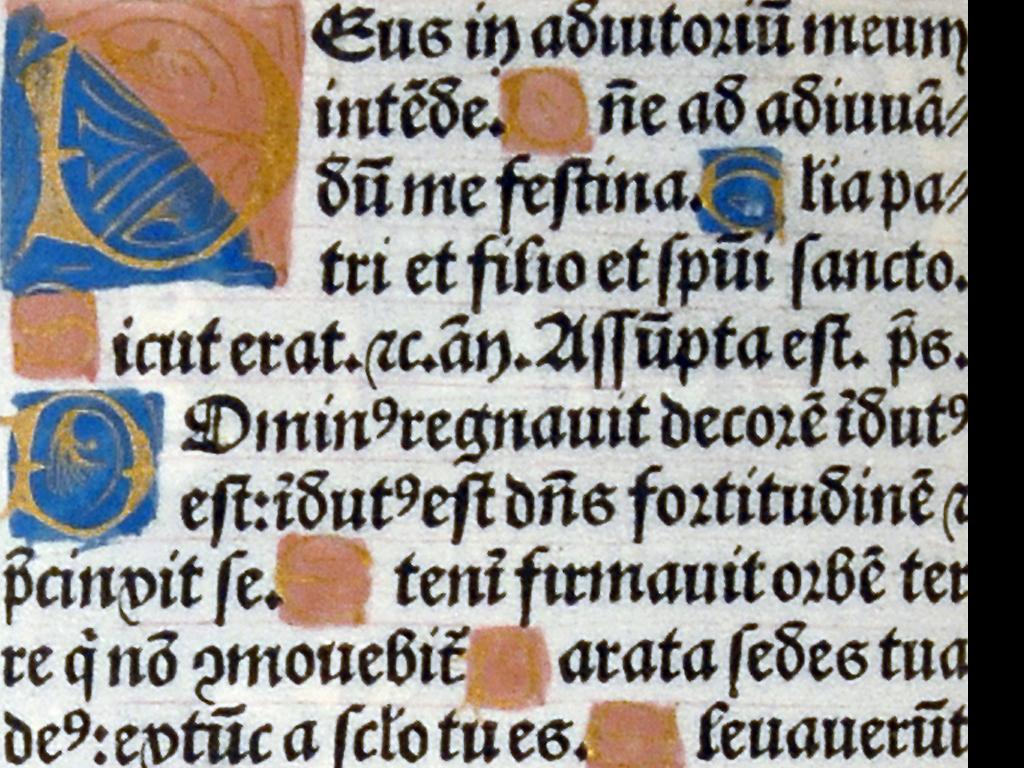 DEus in adiutoriū meum
intēde. Dñe ad adiuuā⸗
dū me festina. Gl'ia pa⸗
tri et filio et spūi sancto.
Sicut erat. ⁊c. añ. Assūpta est. p̄s.
DOmin⁹ regnauit decorē īdut⁹
est: īdut⁹ est dn̄s fortitudinē ⁊
p̄cinxit se. Etenī firmauit orbē ter
re q̇ nō ꝯmouebit̄ Parata sedes tua
de⁹: ex tūc a sc̄lo tu es. Eleuauerūt